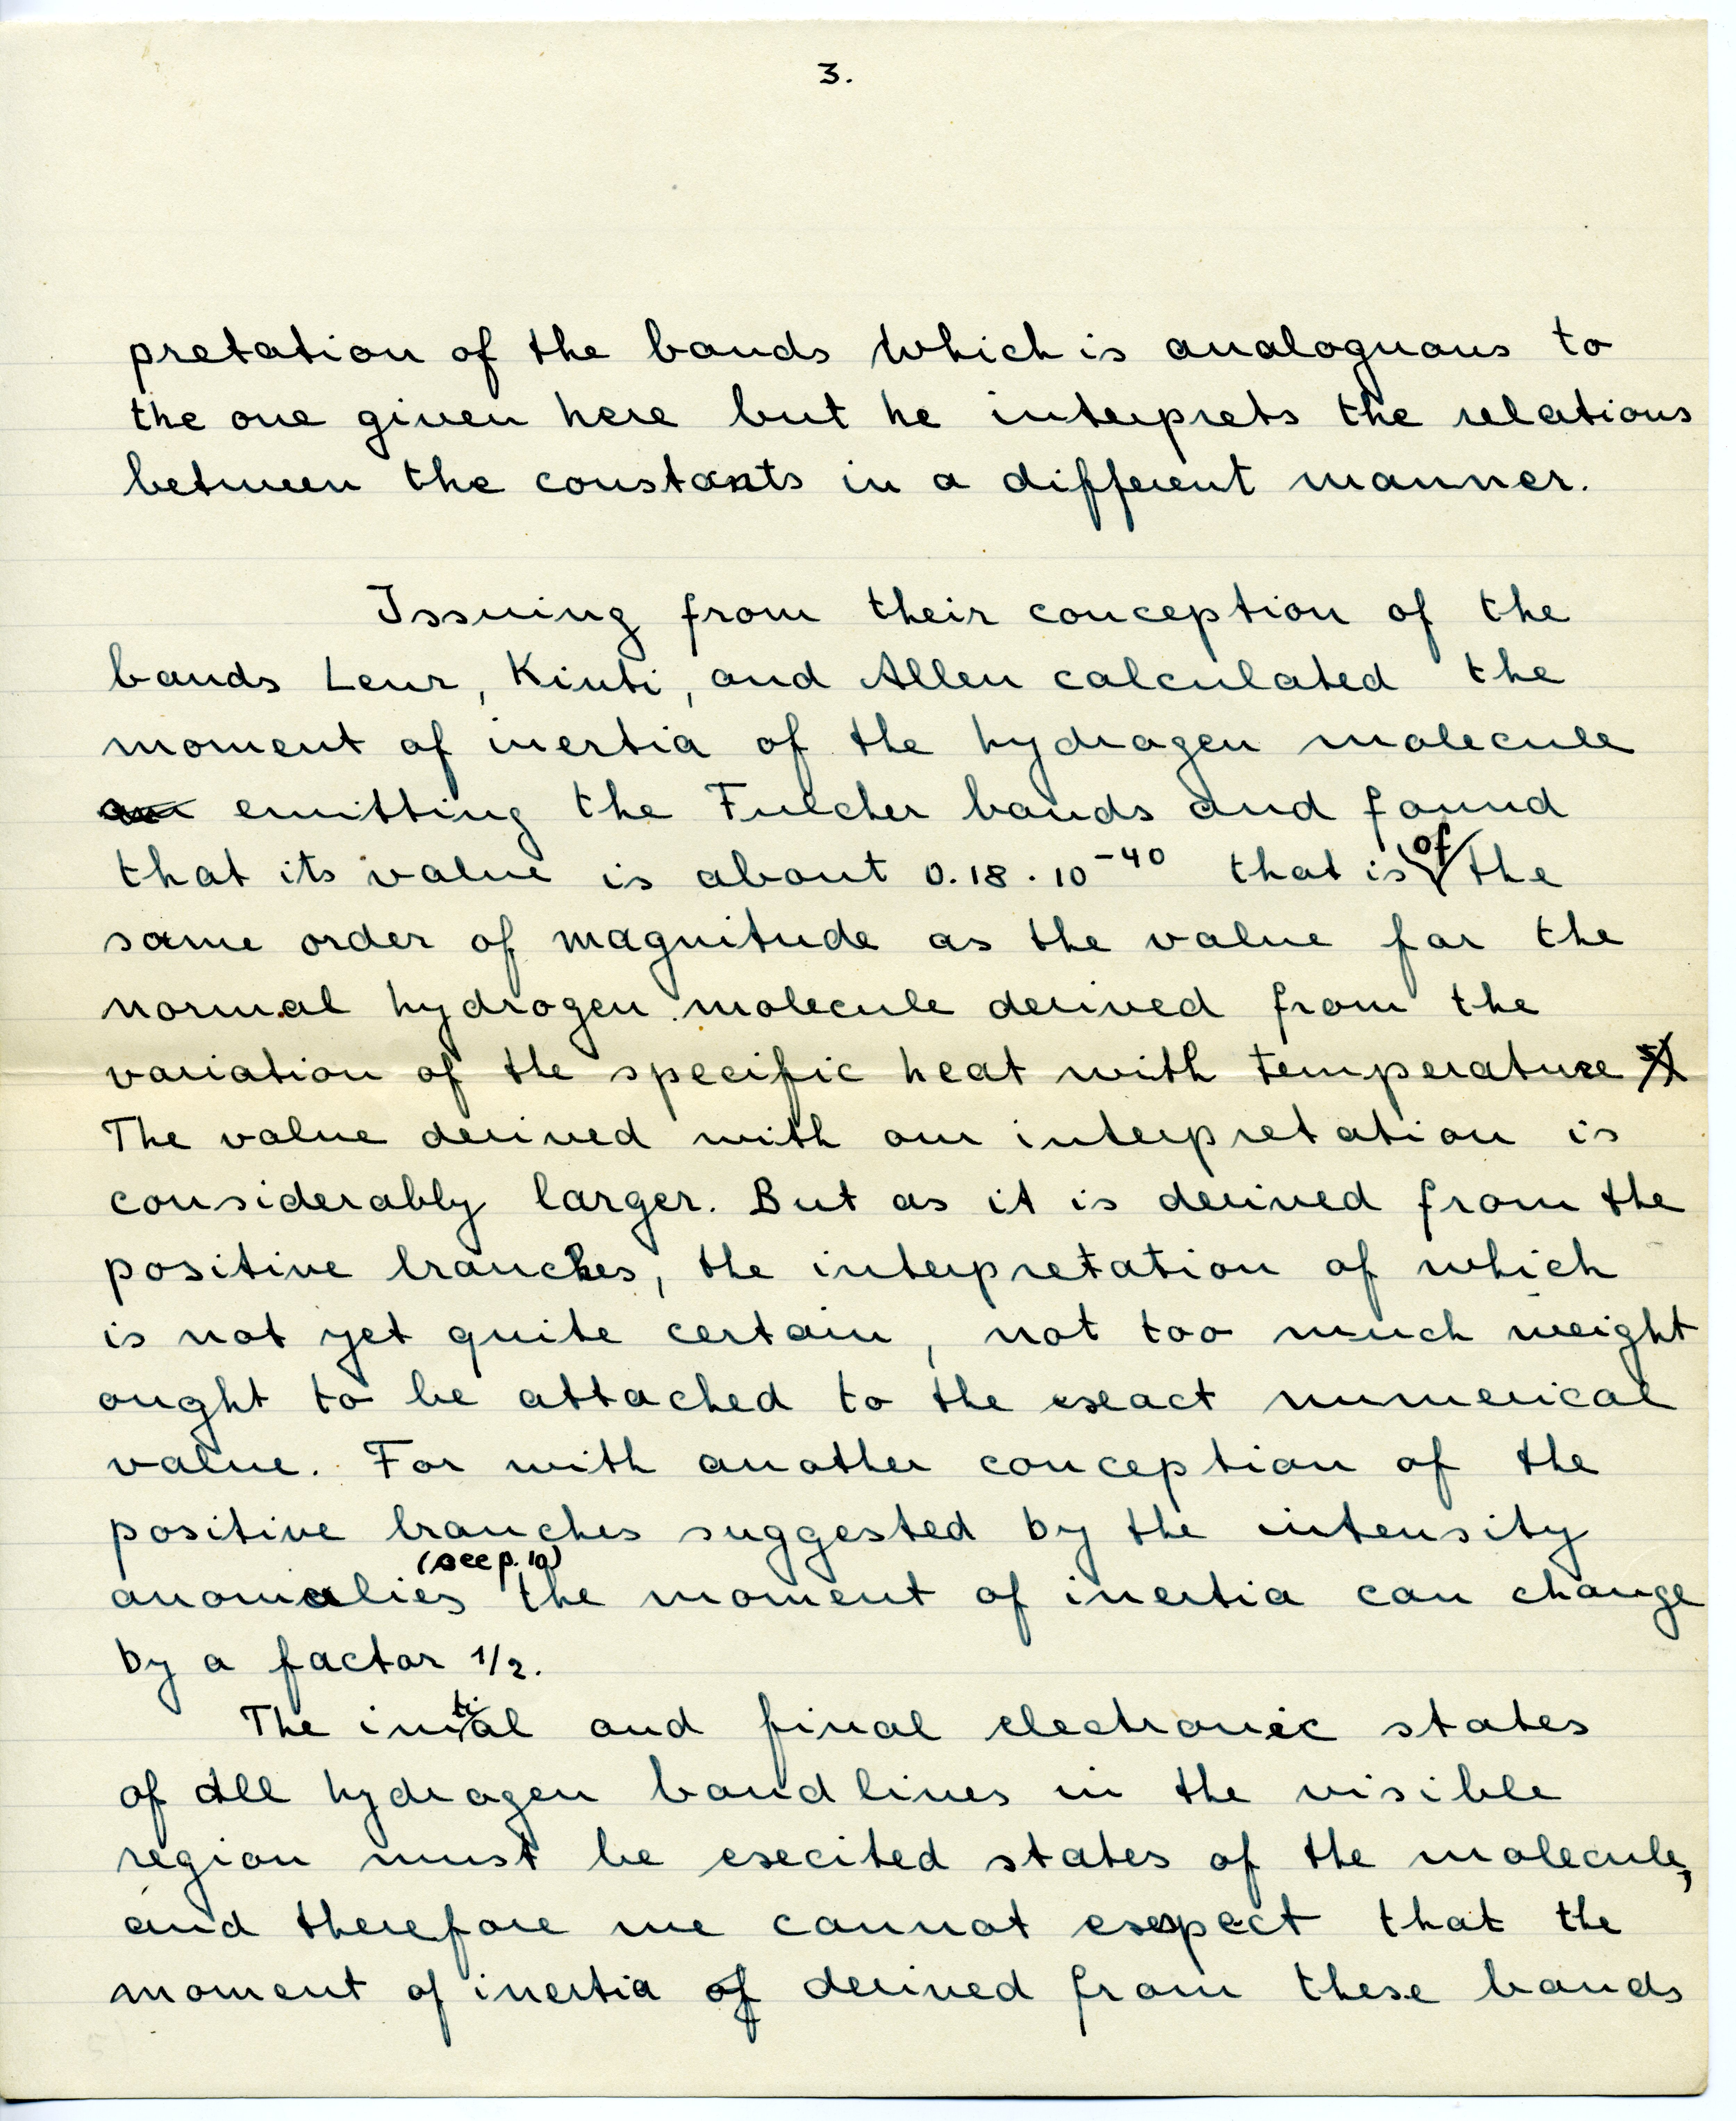 3.
pretation of the bands which is analoguous to
the one given here but he interprets the relations
between the constants in a different manner.
Issuing from their conception of the
bands Lenz, Kiuti, and Allen calculated the
moment of inertia of the hydrogen molecule
emitting the Fulcher bands and found
that its value is about 0.18 · 10⁻⁴⁰ that is of the
same order of magnitude as the value for the
normal hydrogen molecule derived from the
variation of the specific heat with temperature
The value derived with our interpretation is
considerably larger. But as it is derived from the
positive branches, the interpretation of which
is not yet quite certain, not too much weight
ought to be attached to the exact numerical
value. For with another conception of the
positive branches suggested by the intensity
anomalies (see p. 10) the moment of inertia can change
by a factor 1/2.
The initial and final electronic states
of all hydrogen band lines in the visible
region must be excited states of the molecule,
and therefore we cannot expect that the
moment of inertia of derived from these bands